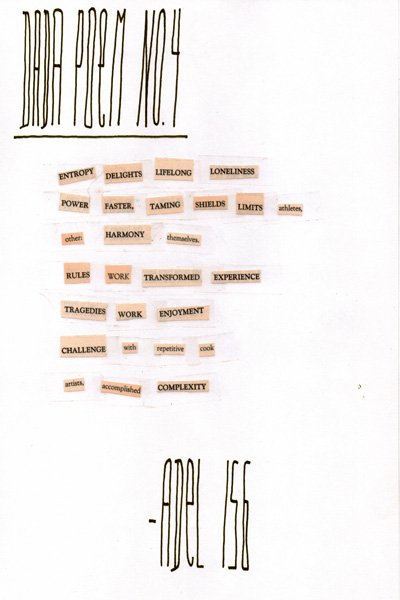 DADA POEM NO.4
ENTROPY DELIGHTS LIFELONG LONELINESS
POWER FASTER, TAMING SHIELDS LIMITS athletes,
other: HARMONY themselves.
RULES WORK TRANSFORMED EXPERIENCE
TRAGEDIES WORK ENJOYMENT
CHALLENGE with repetitive cook
artists, accomplished COMPLEXITY
-ADEL 156